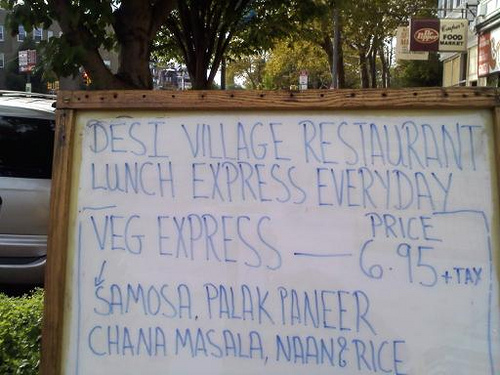 DESI VILLAGE RESTAURANT
LUNCH EXPRESS EVERYDAY
PRICE
VEG EXPRESS — 6.95 + TAX
SAMOSA, PALAK PANEER
CHANA MASALA, NAAN & RICE
FOOD
MARKET